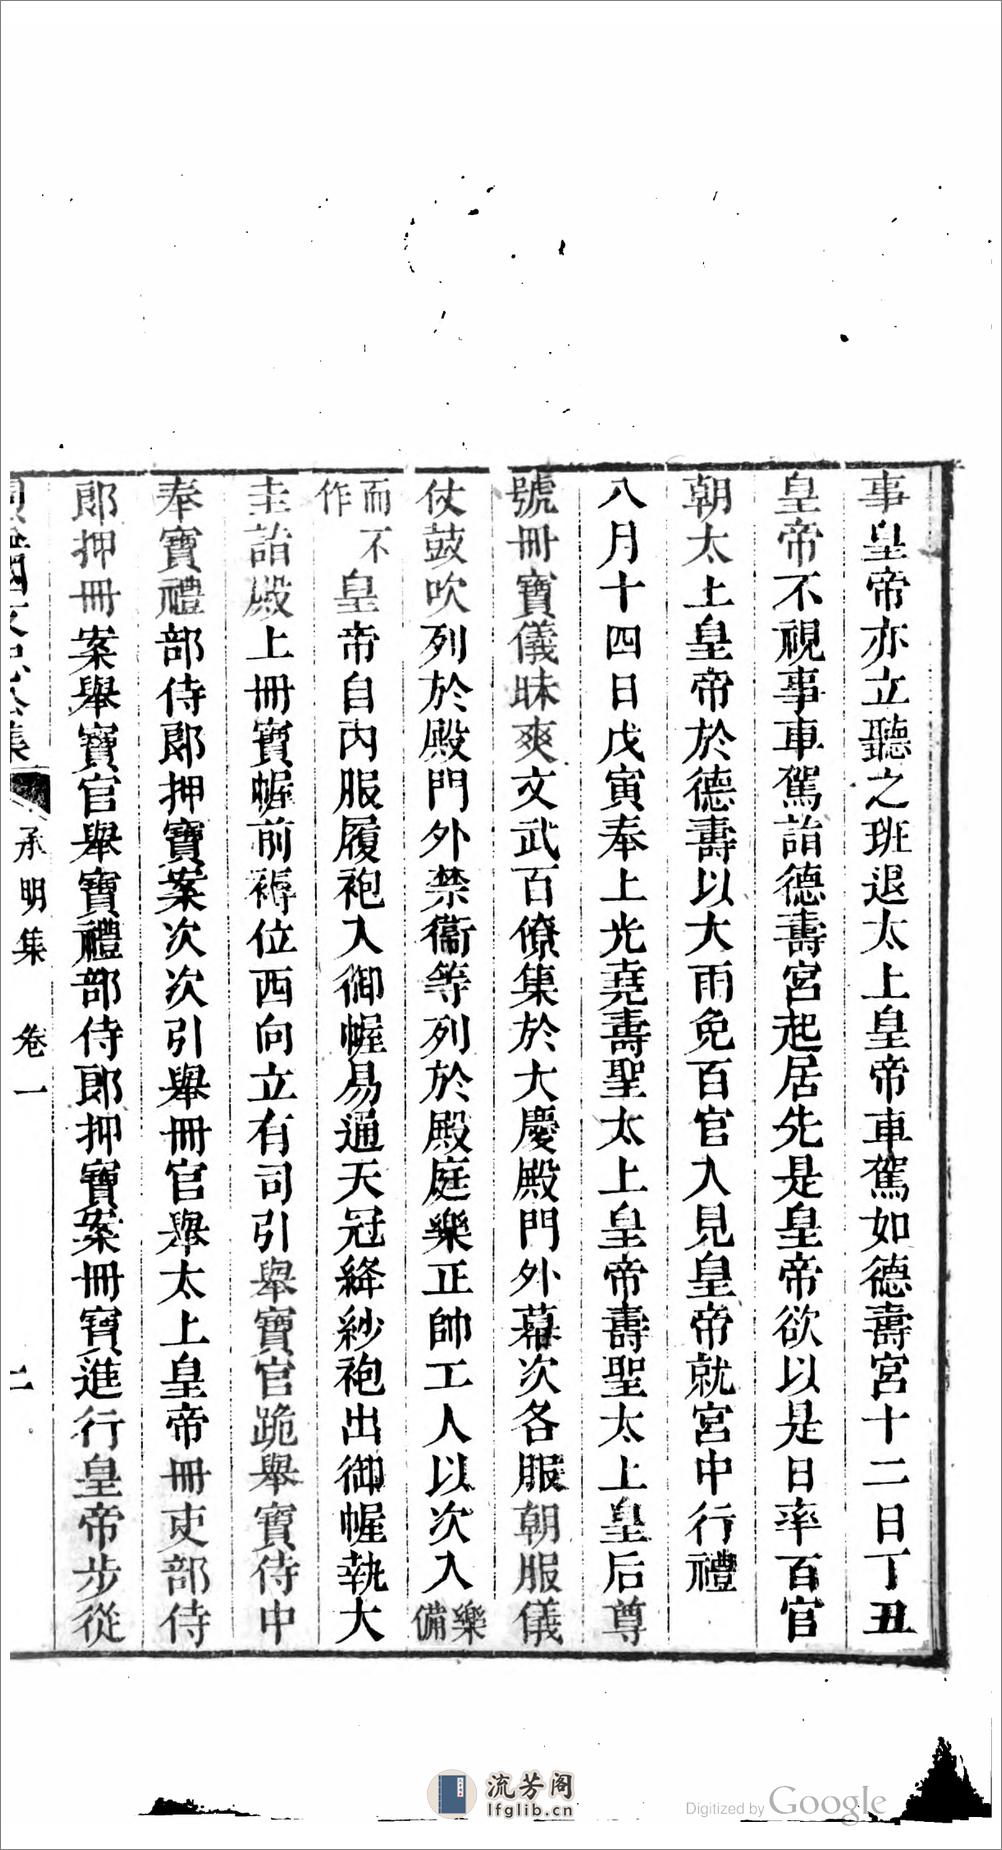 事皇帝亦立聽之班退太上皇帝車駕如德壽宮十二日丁丑
皇帝不視事車駕詣德壽宮起居先是皇帝欲以是日率百官
朝太上皇帝於德壽以大雨免百官入見皇帝就宮中行禮
八月十四日戊寅奉上光堯壽聖太上皇帝壽聖太上皇后尊
號冊寶儀昧爽文武百僚集於大慶殿門外幕次各服朝服儀
仗鼓吹列於殿門外禁衞等列於殿庭樂正帥工人以次入樂備
而不作皇帝自內服履袍入御幄易通天冠絳紗袍出御幄執大
圭詣殿上冊寶幄前褥位西向立有司引舉寶官跪舉寶侍中
奉寶禮部侍郞押寶案次次引舉冊官舉太上皇帝冊吏部侍
郞押冊案舉寶官舉寶禮部侍郞押寶案冊寶進行皇帝步從
承明集 卷一
流芳阁
lfglib.cn
Digitized by Google